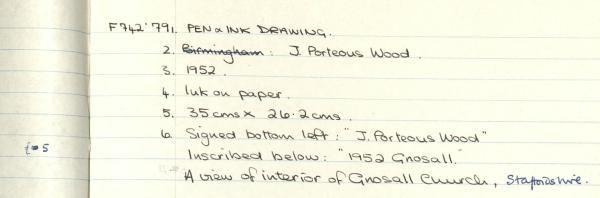 F742'79 1. PEN & INK DRAWING.
2. Birmingham: J. Porteous Wood.
3. 1952.
4. Ink on paper.
5. 35cms x 26.2cms.
6. Signed bottom left: "J. Porteous Wood"
Inscribed below: "1952 Gnosall."
A view of interior of Gnosall Church, Staffordshire.